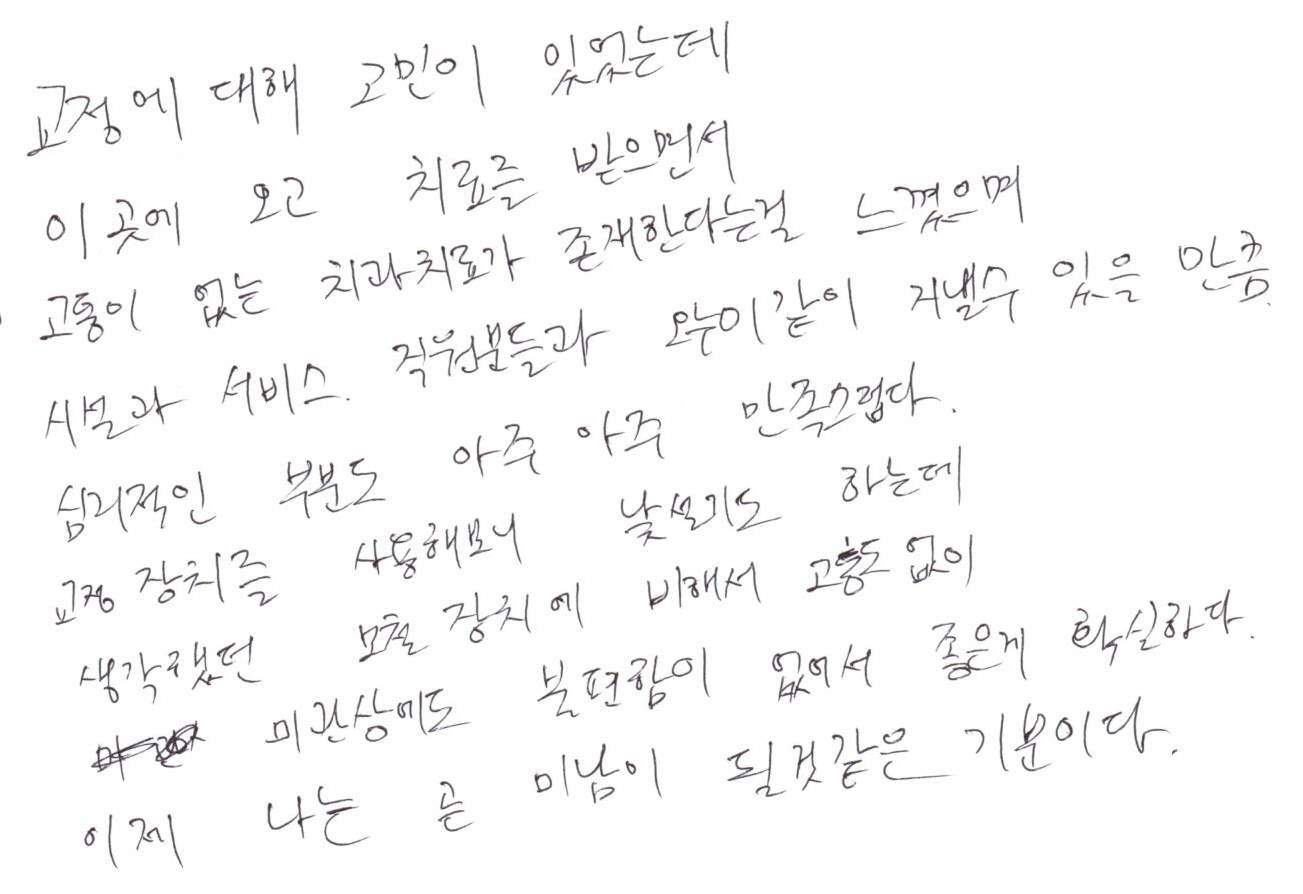 교정에 대해 고민이 있었는데
이 곳에 오고 치료를 받으면서
고통이 없는 치과치료가 존재한다는걸 느꼈으며
시설과 서비스. 직원분들과 오누이같이 지낼수 있을 만큼.
심리적인 부분도 아주 아주 만족스럽다.
교정 장치를 사용해보니 낯설기도 하는데
생각했던 보철 장치에 비해서 고통도 없이
미관상에도 불편함이 없어서 좋은게 확실하다.
이제 나는 곧 미남이 될것같은 기분이다.